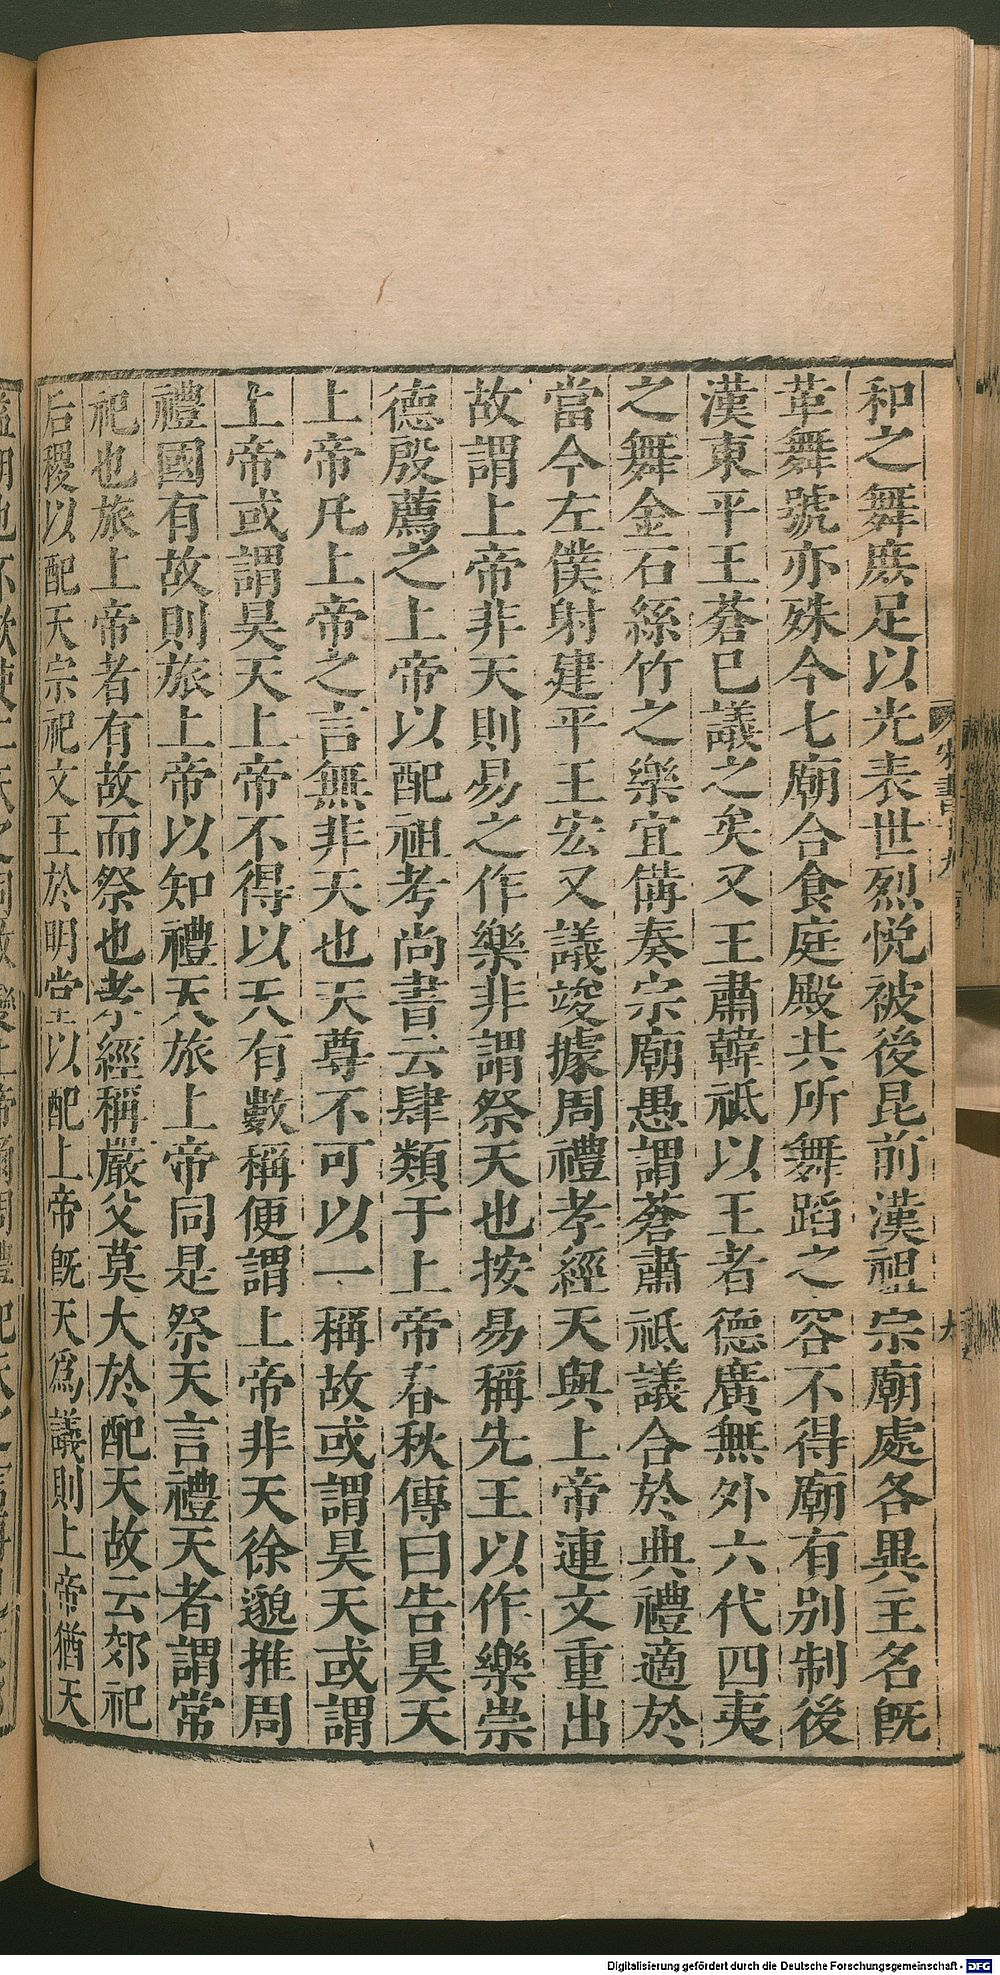 和之舞庶足以光表世烈悅被後昆前漢祖宗廟處各異主名既
革舞號亦殊今七廟合食庭殿共所舞蹈之容不得廟有別制後
漢東平王蒼已議之矣又王肅韓祗以王者德廣無外六代四夷
之舞金石絲竹之樂宜備奏宗廟愚謂蒼肅祗議合於典禮適於
當今左僕射建平王宏又議竣據周禮孝經天與上帝連文重出
故謂上帝非天則易之作樂非謂祭天也按易稱先王以作樂崇
德殷薦之上帝以配祖考尚書云肆類于上帝春秋傳曰告昊天
上帝凡上帝之言無非天也天尊不可以一稱故或謂昊天或謂
上帝或謂昊天上帝不得以天有數稱便謂上帝非天徐邈推周
禮國有故則旅上帝以知禮天旅上帝同是祭天言禮天者謂常
祀也旅上帝者有故而祭也孝經稱嚴父莫大於配天故云郊祀
后稷以配天宗祀文王於明堂以配上帝既天爲議則上帝猶天
Digitalisierung gefördert durch die Deutsche Forschungsgemeinschaft - DFG